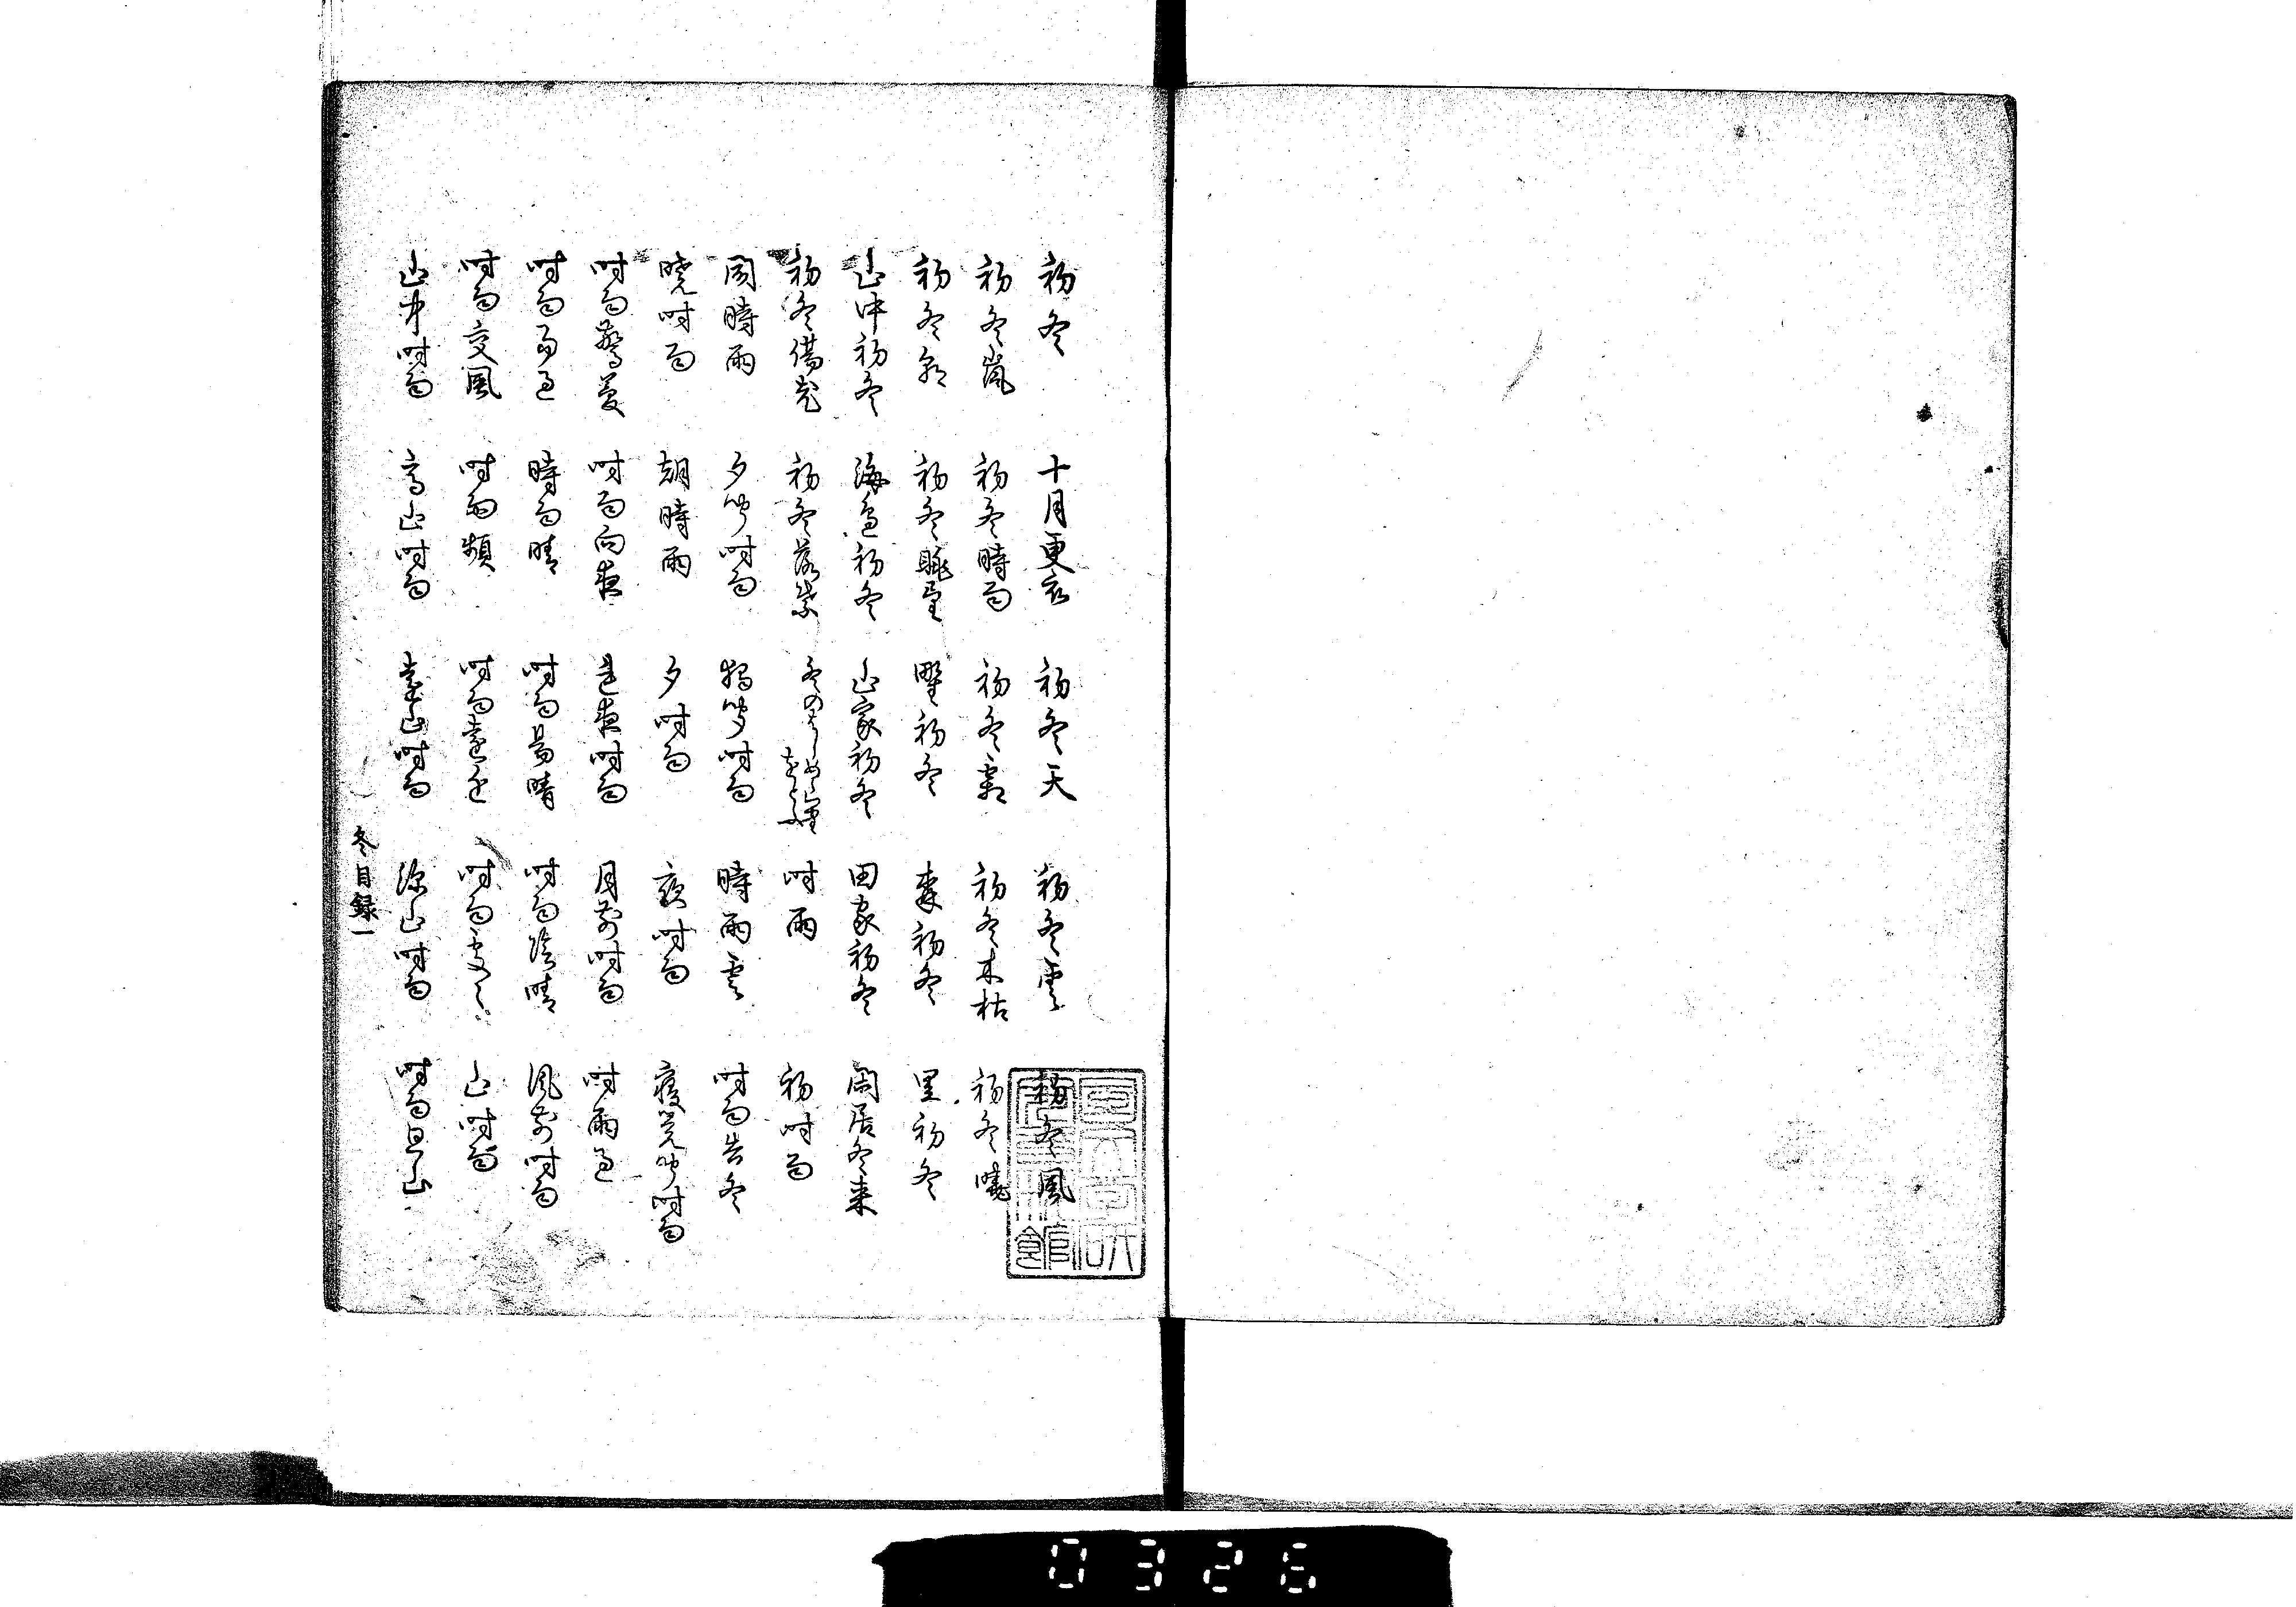 初冬　十月更衣　初冬天　初冬雲　初冬風
初冬嵐　初冬時雨　初冬霜　初冬木枯　初冬暁
初冬朝　初冬眺望　野初冬　森初冬　里初冬
山中初冬　海辺初冬　山家初冬　田家初冬　閑居冬来
初冬備花　初冬落葉　冬の　時雨　初時雨
閑時雨　夕聞時雨　独聞時雨　時雨雲　時雨告冬
暁時雨　朝時雨　夕時雨　夜時雨　寝覚聞時雨
時雨驚夢　時雨向夜　連夜時雨　月前時雨　時雨過
時雨易過　時雨晴　時雨易晴　時雨陰晴　風前時雨
時雨交風　時雨頻　時雨遠近　時雨処々　山時雨
山中時雨　高山時雨　遠山時雨　深山時雨　時雨旦山
冬目録一
0326